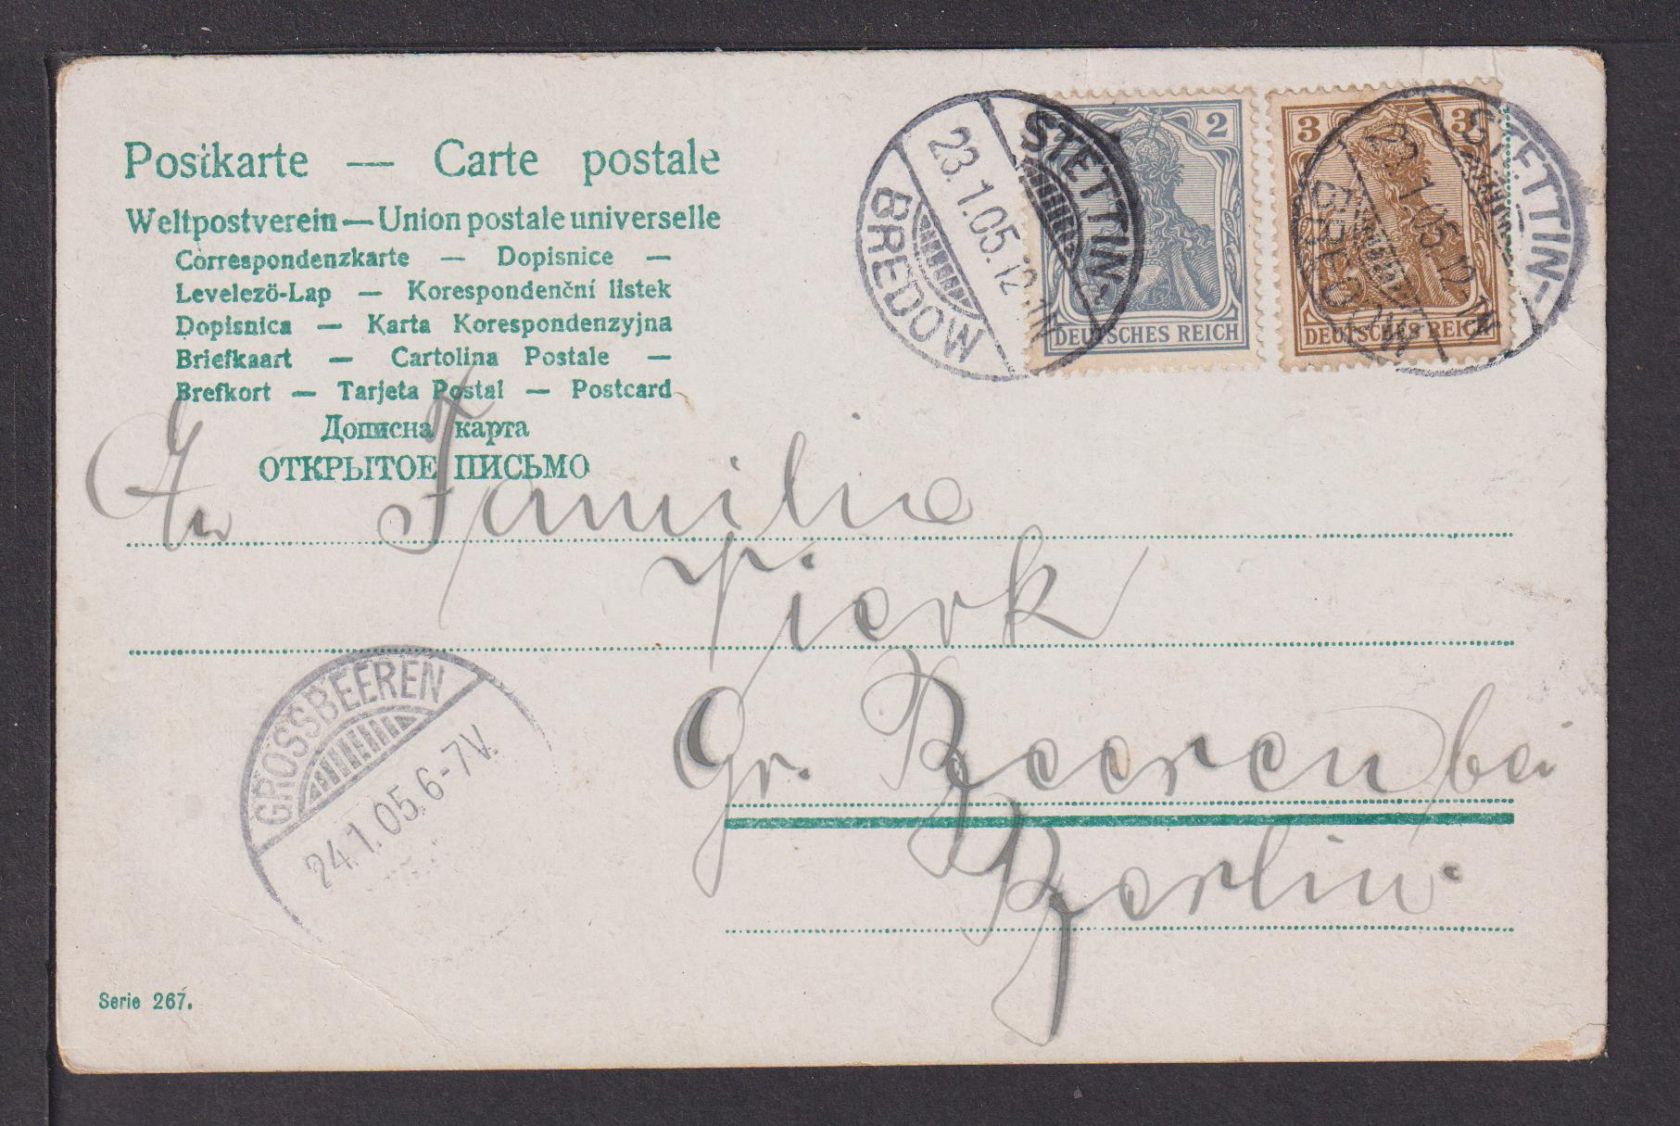 Postkarte — Carte postale
Weltpostverein — Union postale universelle
Correspondenzkarte — Dopisnice —
Levelező-Lap — Korespondenční listek
Dopisnica — Karta Korespondenzyjna
Briefkaart — Cartolina Postale —
Brefkort — Tarjeta Postal — Postcard
Дописна карта
ОТКРЫТОЕ ПИСЬМО
STETTIN-
23.1.05.12-1N
BREDOW
2
DEUTSCHES REICH
3 3
DEUTSCHES REICH
STETTIN-
23.1.05.12-1N
BREDOW
An Familie
Pierk
Gr. Beeren bei
Berlin.
GROSSBEEREN
24.1.05.6-7V.
Serie 267.